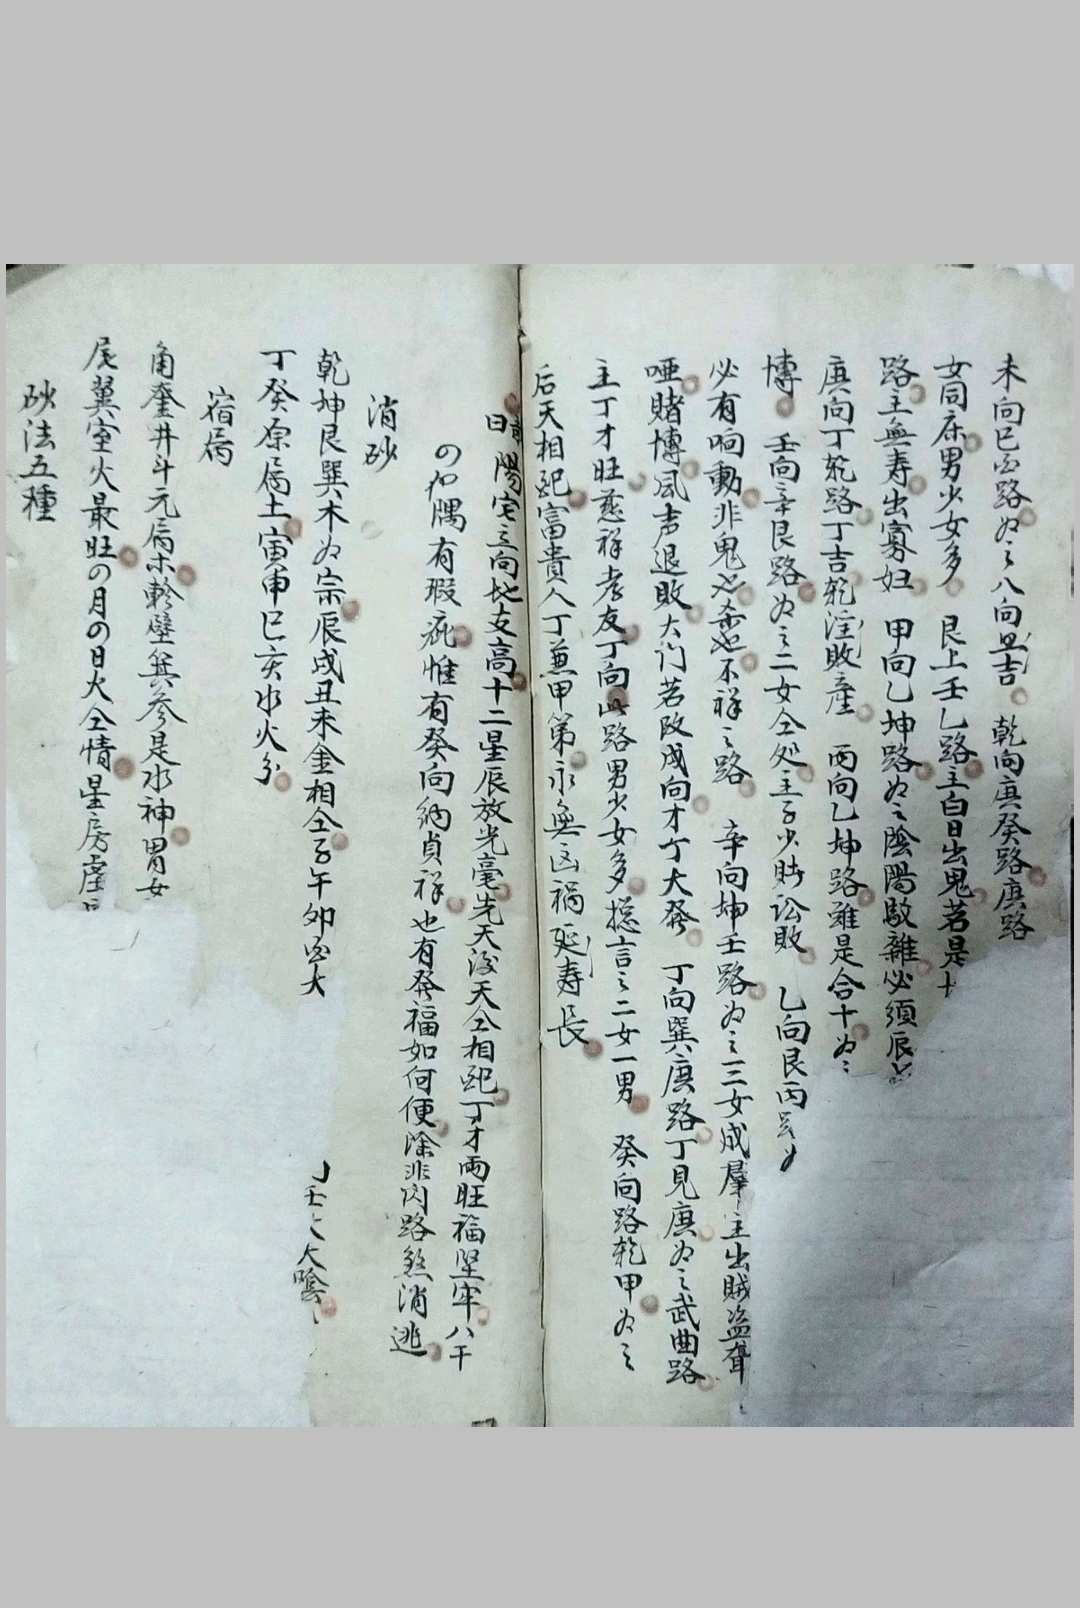 未向巳酉路为之八向且吉　乾向庚癸路庚路
女同床男少女多　艮上壬乙路主白日出鬼若是十
路主無寿出寡妇　甲向乙坤路为之陰陽駁雜必須辰
庚向丁乾路丁吉乾注敗產　丙向乙坤路雖是合十为之
博　壬向辛艮路为之二女仝处主子少賭訟敗　乙向艮丙
必有响動非鬼也杀也不祥之路　辛向坤壬路为之三女成羣主出賊盗聋
哑賭博風声退敗大门若改成向才丁大發　丁向巽庚路丁見庚为之武曲路
主丁才旺慈祥孝友丁向此路男少女多摠言之二女一男　癸向路乾甲为之
后天相配富貴人丁兼甲第永無凶禍延寿長
曰陽宅立向地支高十二星辰放光毫先天後天仝相配丁才両旺福堅牢八干
の加隅有瑕疵惟有癸向納貞祥也有發福如何便除非内路煞消逃
消砂
乾坤艮巽木为宗辰戌丑未金相仝子午卯酉大
壬大陰
丁癸原屬土寅申巳亥水火分
宿局
角奎井斗元屬木軫壁箕參是水神胃女
尾翼室火最旺の月の日火仝情星房虚
砂法五種